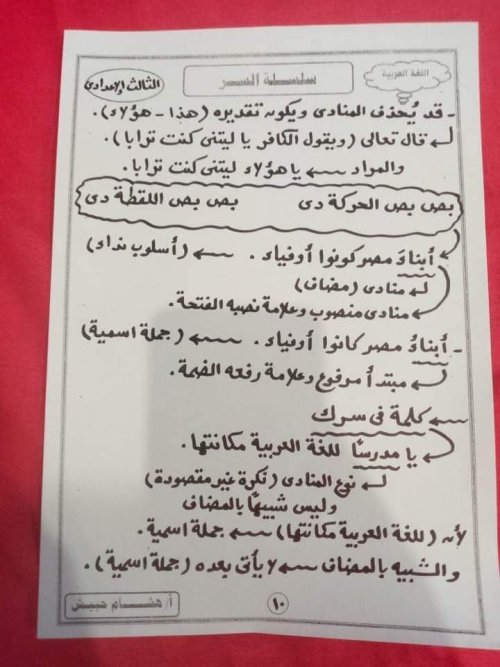 اللغة العربية
سلسلة السر
الثالث الإعدادى
- قد يُحذف المنادى ويكون تقديره (هذا - هؤلاء).
قال تعالى (ويقول الكافر يا ليتنى كنت ترابا).
والمراد يا هؤلاء ليتنى كنت ترابا.
بص بص الحركة دى بص بص اللقطة دى
أبناءَ مصر كونوا أوفياء. (أسلوب نداء)
منادى (مضاف)
منادى منصوب وعلامة نصبه الفتحة.
- أبناءُ مصر كانوا أوفياء. (جملة اسمية)
مبتدأ مرفوع وعلامة رفعه الضمة.
كلمة فى سرك
يا مدرسًا للغة العربية مكانتها.
نوع المنادى (نكرة غير مقصودة)
وليس شبيهًا بالمضاف
لأن (للغة العربية مكانتها) جملة اسمية.
والشبيه بالمضاف لا يأتى بعده (جملة اسمية).
١٠
أ/ هشام حبيش